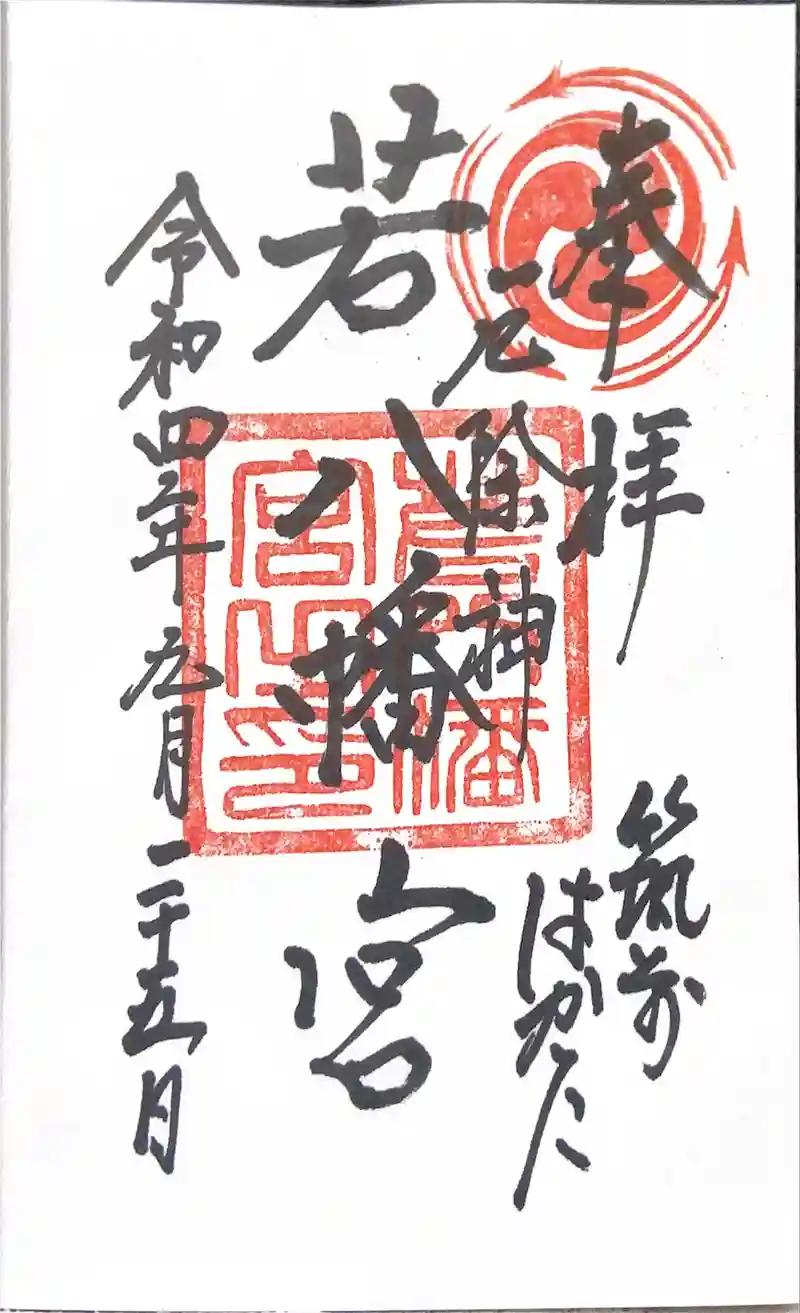 奉拝
筑前
厄除神
はかた
若八幡宮
令和四年九月二十五日
若八幡
宮之印